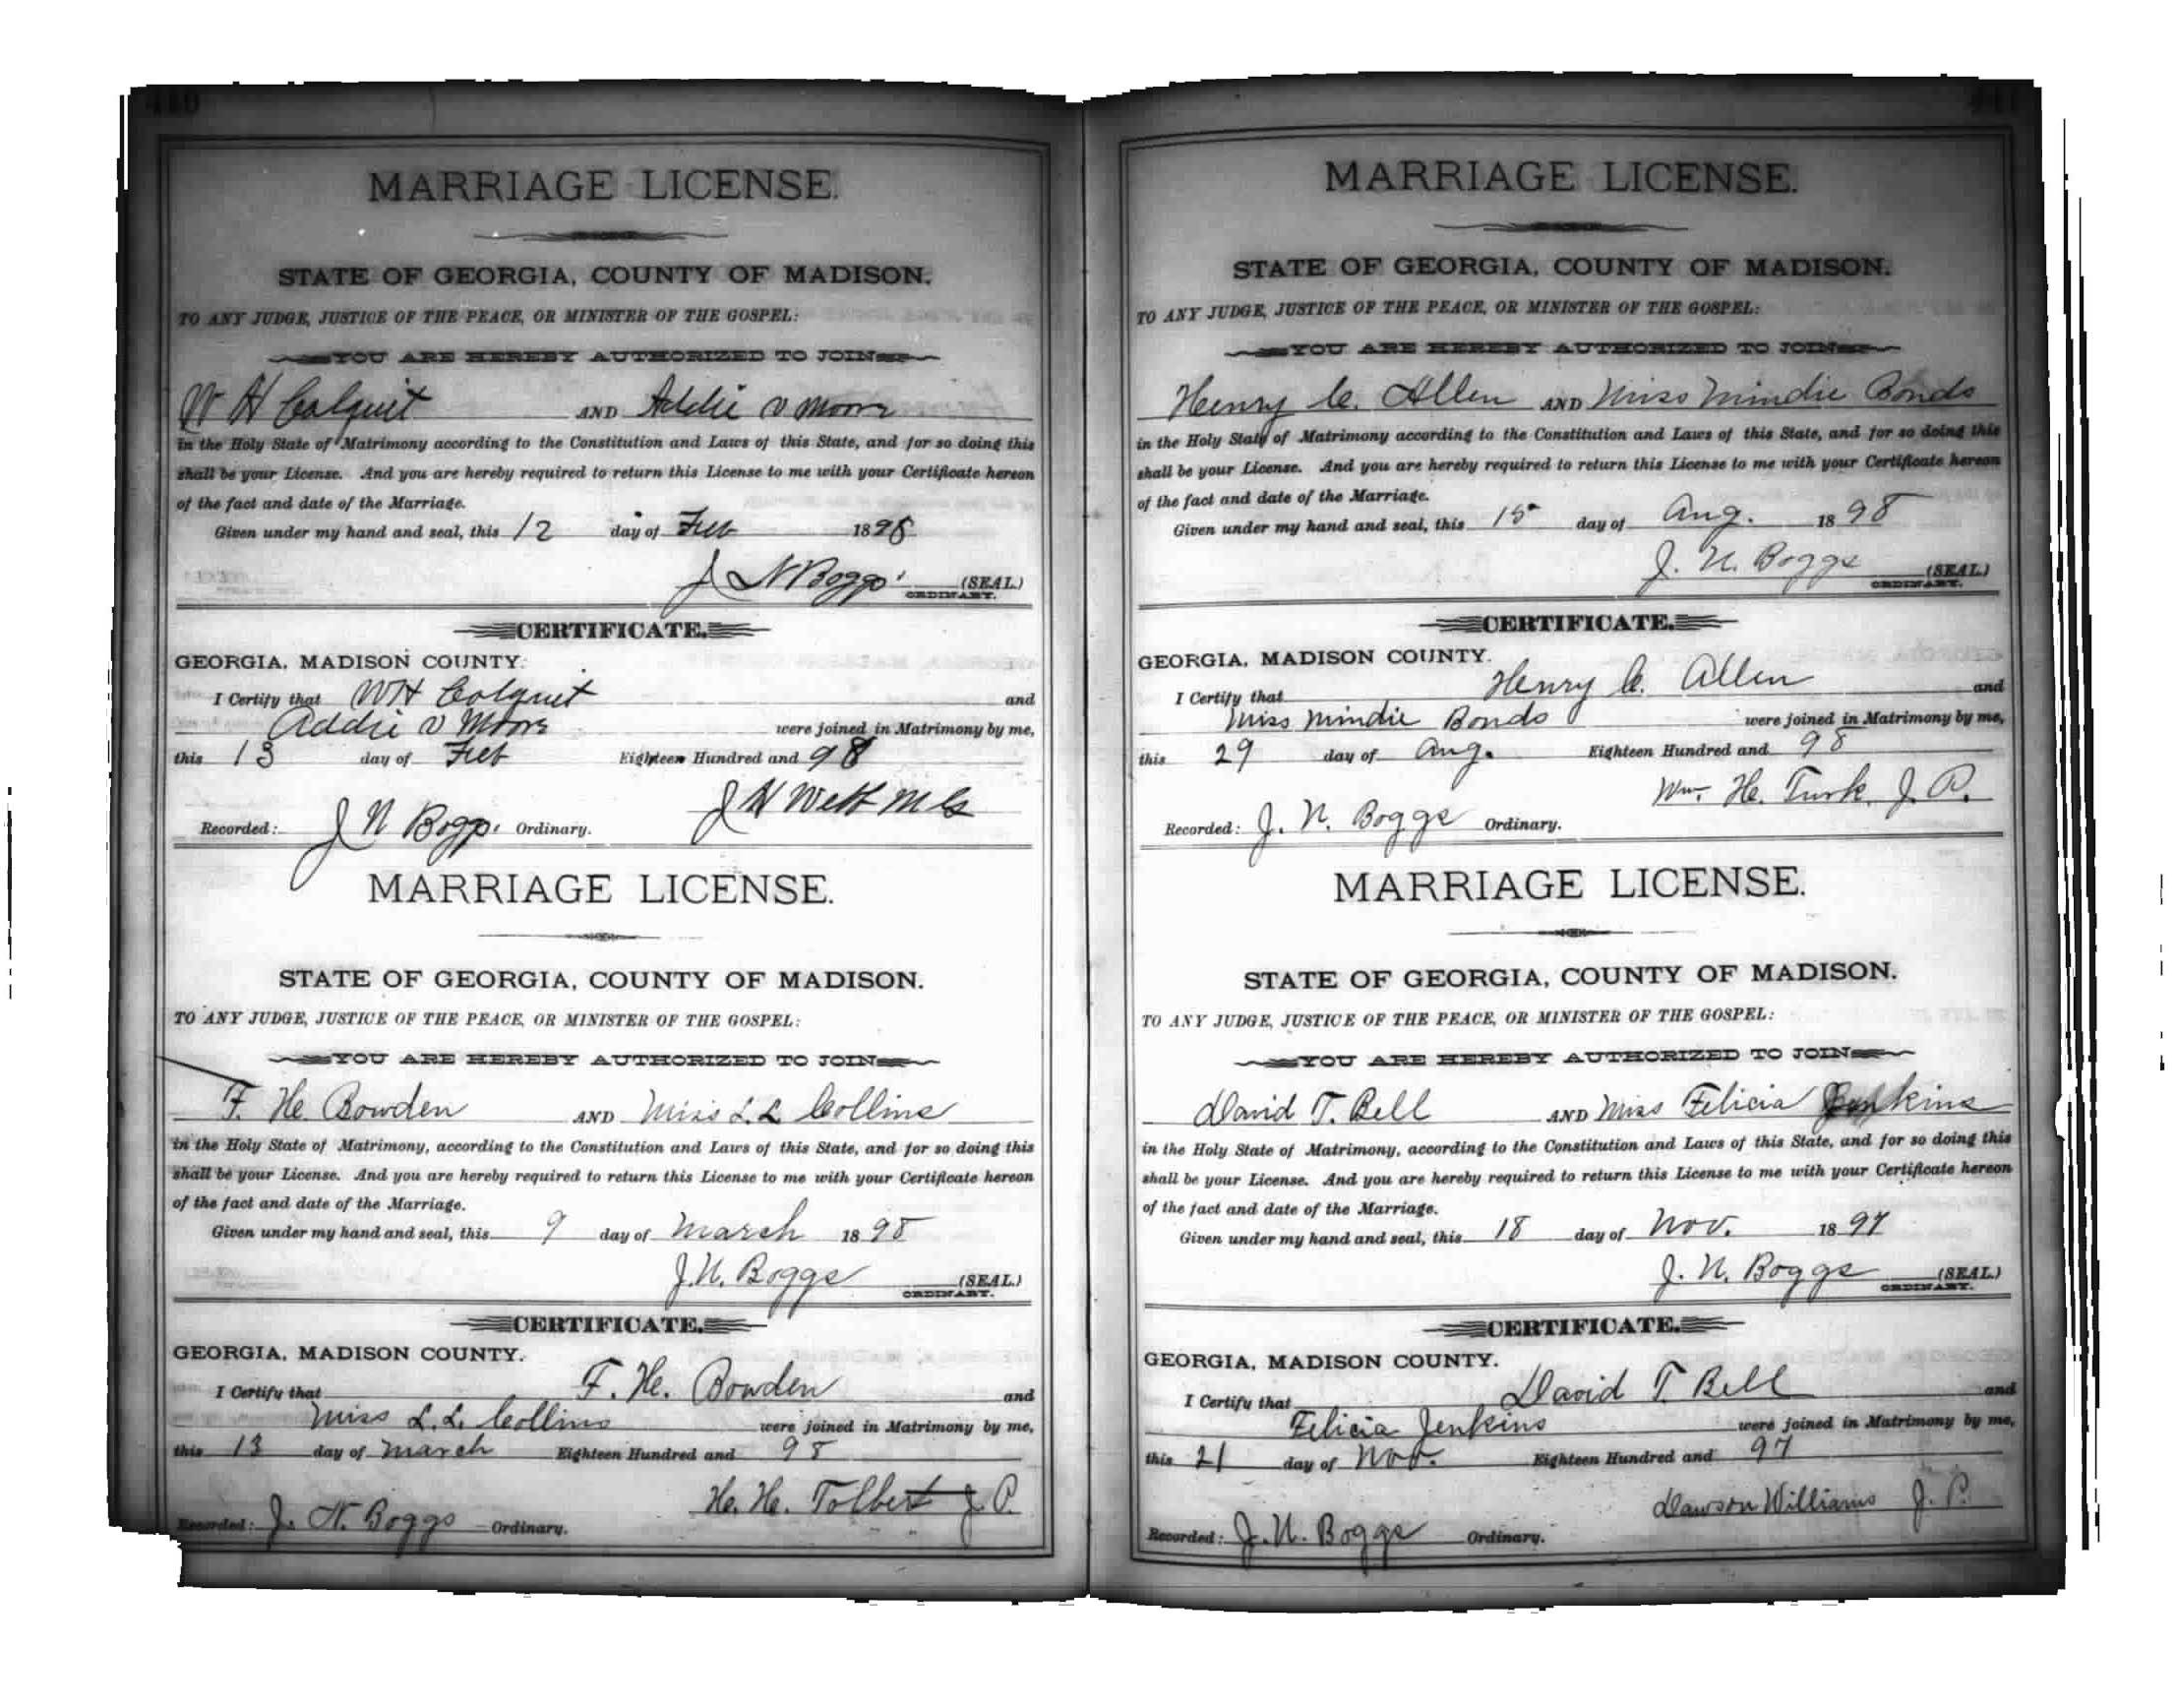 440
MARRIAGE LICENSE.
STATE OF GEORGIA, COUNTY OF MADISON.
TO ANY JUDGE, JUSTICE OF THE PEACE, OR MINISTER OF THE GOSPEL:
YOU ARE HEREBY AUTHORIZED TO JOIN
W H Colquit AND Addie V Moore
in the Holy State of Matrimony according to the Constitution and Laws of this State, and for so doing this
shall be your License. And you are hereby required to return this License to me with your Certificate hereon
of the fact and date of the Marriage.
Given under my hand and seal, this 12 day of Feb 1898
J N Boggs (SEAL.)
ORDINARY.
CERTIFICATE.
GEORGIA, MADISON COUNTY.
I Certify that W H Colquit and
Addie V Moore were joined in Matrimony by me,
this 13 day of Feb Eighteen Hundred and 98
J H M G
Recorded: J N Boggs Ordinary.
MARRIAGE LICENSE.
STATE OF GEORGIA, COUNTY OF MADISON.
TO ANY JUDGE, JUSTICE OF THE PEACE, OR MINISTER OF THE GOSPEL:
YOU ARE HEREBY AUTHORIZED TO JOIN
F. H. Bowden AND Miss L. L. Collins
in the Holy State of Matrimony, according to the Constitution and Laws of this State, and for so doing this
shall be your License. And you are hereby required to return this License to me with your Certificate hereon
of the fact and date of the Marriage.
Given under my hand and seal, this 9 day of March 1898
J. N. Boggs (SEAL.)
ORDINARY.
CERTIFICATE.
GEORGIA, MADISON COUNTY.
I Certify that F. H. Bowden and
Miss L. L. Collins were joined in Matrimony by me,
this 13 day of March Eighteen Hundred and 98
H. H. Tolbert J. P.
Recorded: J. N. Boggs Ordinary.
MARRIAGE LICENSE.
STATE OF GEORGIA, COUNTY OF MADISON.
TO ANY JUDGE, JUSTICE OF THE PEACE, OR MINISTER OF THE GOSPEL:
YOU ARE HEREBY AUTHORIZED TO JOIN
Henry C. Allen AND Miss Mindie Bonds
in the Holy State of Matrimony according to the Constitution and Laws of this State, and for so doing this
shall be your License. And you are hereby required to return this License to me with your Certificate hereon
of the fact and date of the Marriage.
Given under my hand and seal, this 15 day of Aug. 1898
J. N. Boggs (SEAL.)
ORDINARY.
CERTIFICATE.
GEORGIA, MADISON COUNTY.
I Certify that Henry C. Allen and
Miss Mindie Bonds were joined in Matrimony by me,
this 29 day of Aug. Eighteen Hundred and 98
Wm. H. Turk, J. P.
Recorded: J. N. Boggs Ordinary.
MARRIAGE LICENSE.
STATE OF GEORGIA, COUNTY OF MADISON.
TO ANY JUDGE, JUSTICE OF THE PEACE, OR MINISTER OF THE GOSPEL:
YOU ARE HEREBY AUTHORIZED TO JOIN
David T. Bell AND Miss Felicia Jenkins
in the Holy State of Matrimony, according to the Constitution and Laws of this State, and for so doing this
shall be your License. And you are hereby required to return this License to me with your Certificate hereon
of the fact and date of the Marriage.
Given under my hand and seal, this 18 day of Nov. 1897
J. N. Boggs (SEAL.)
ORDINARY.
CERTIFICATE.
GEORGIA, MADISON COUNTY.
I Certify that David T. Bell and
Felicia Jenkins were joined in Matrimony by me,
this 21 day of Nov. Eighteen Hundred and 97
Dawson Williams J. P.
Recorded: J. N. Boggs Ordinary.